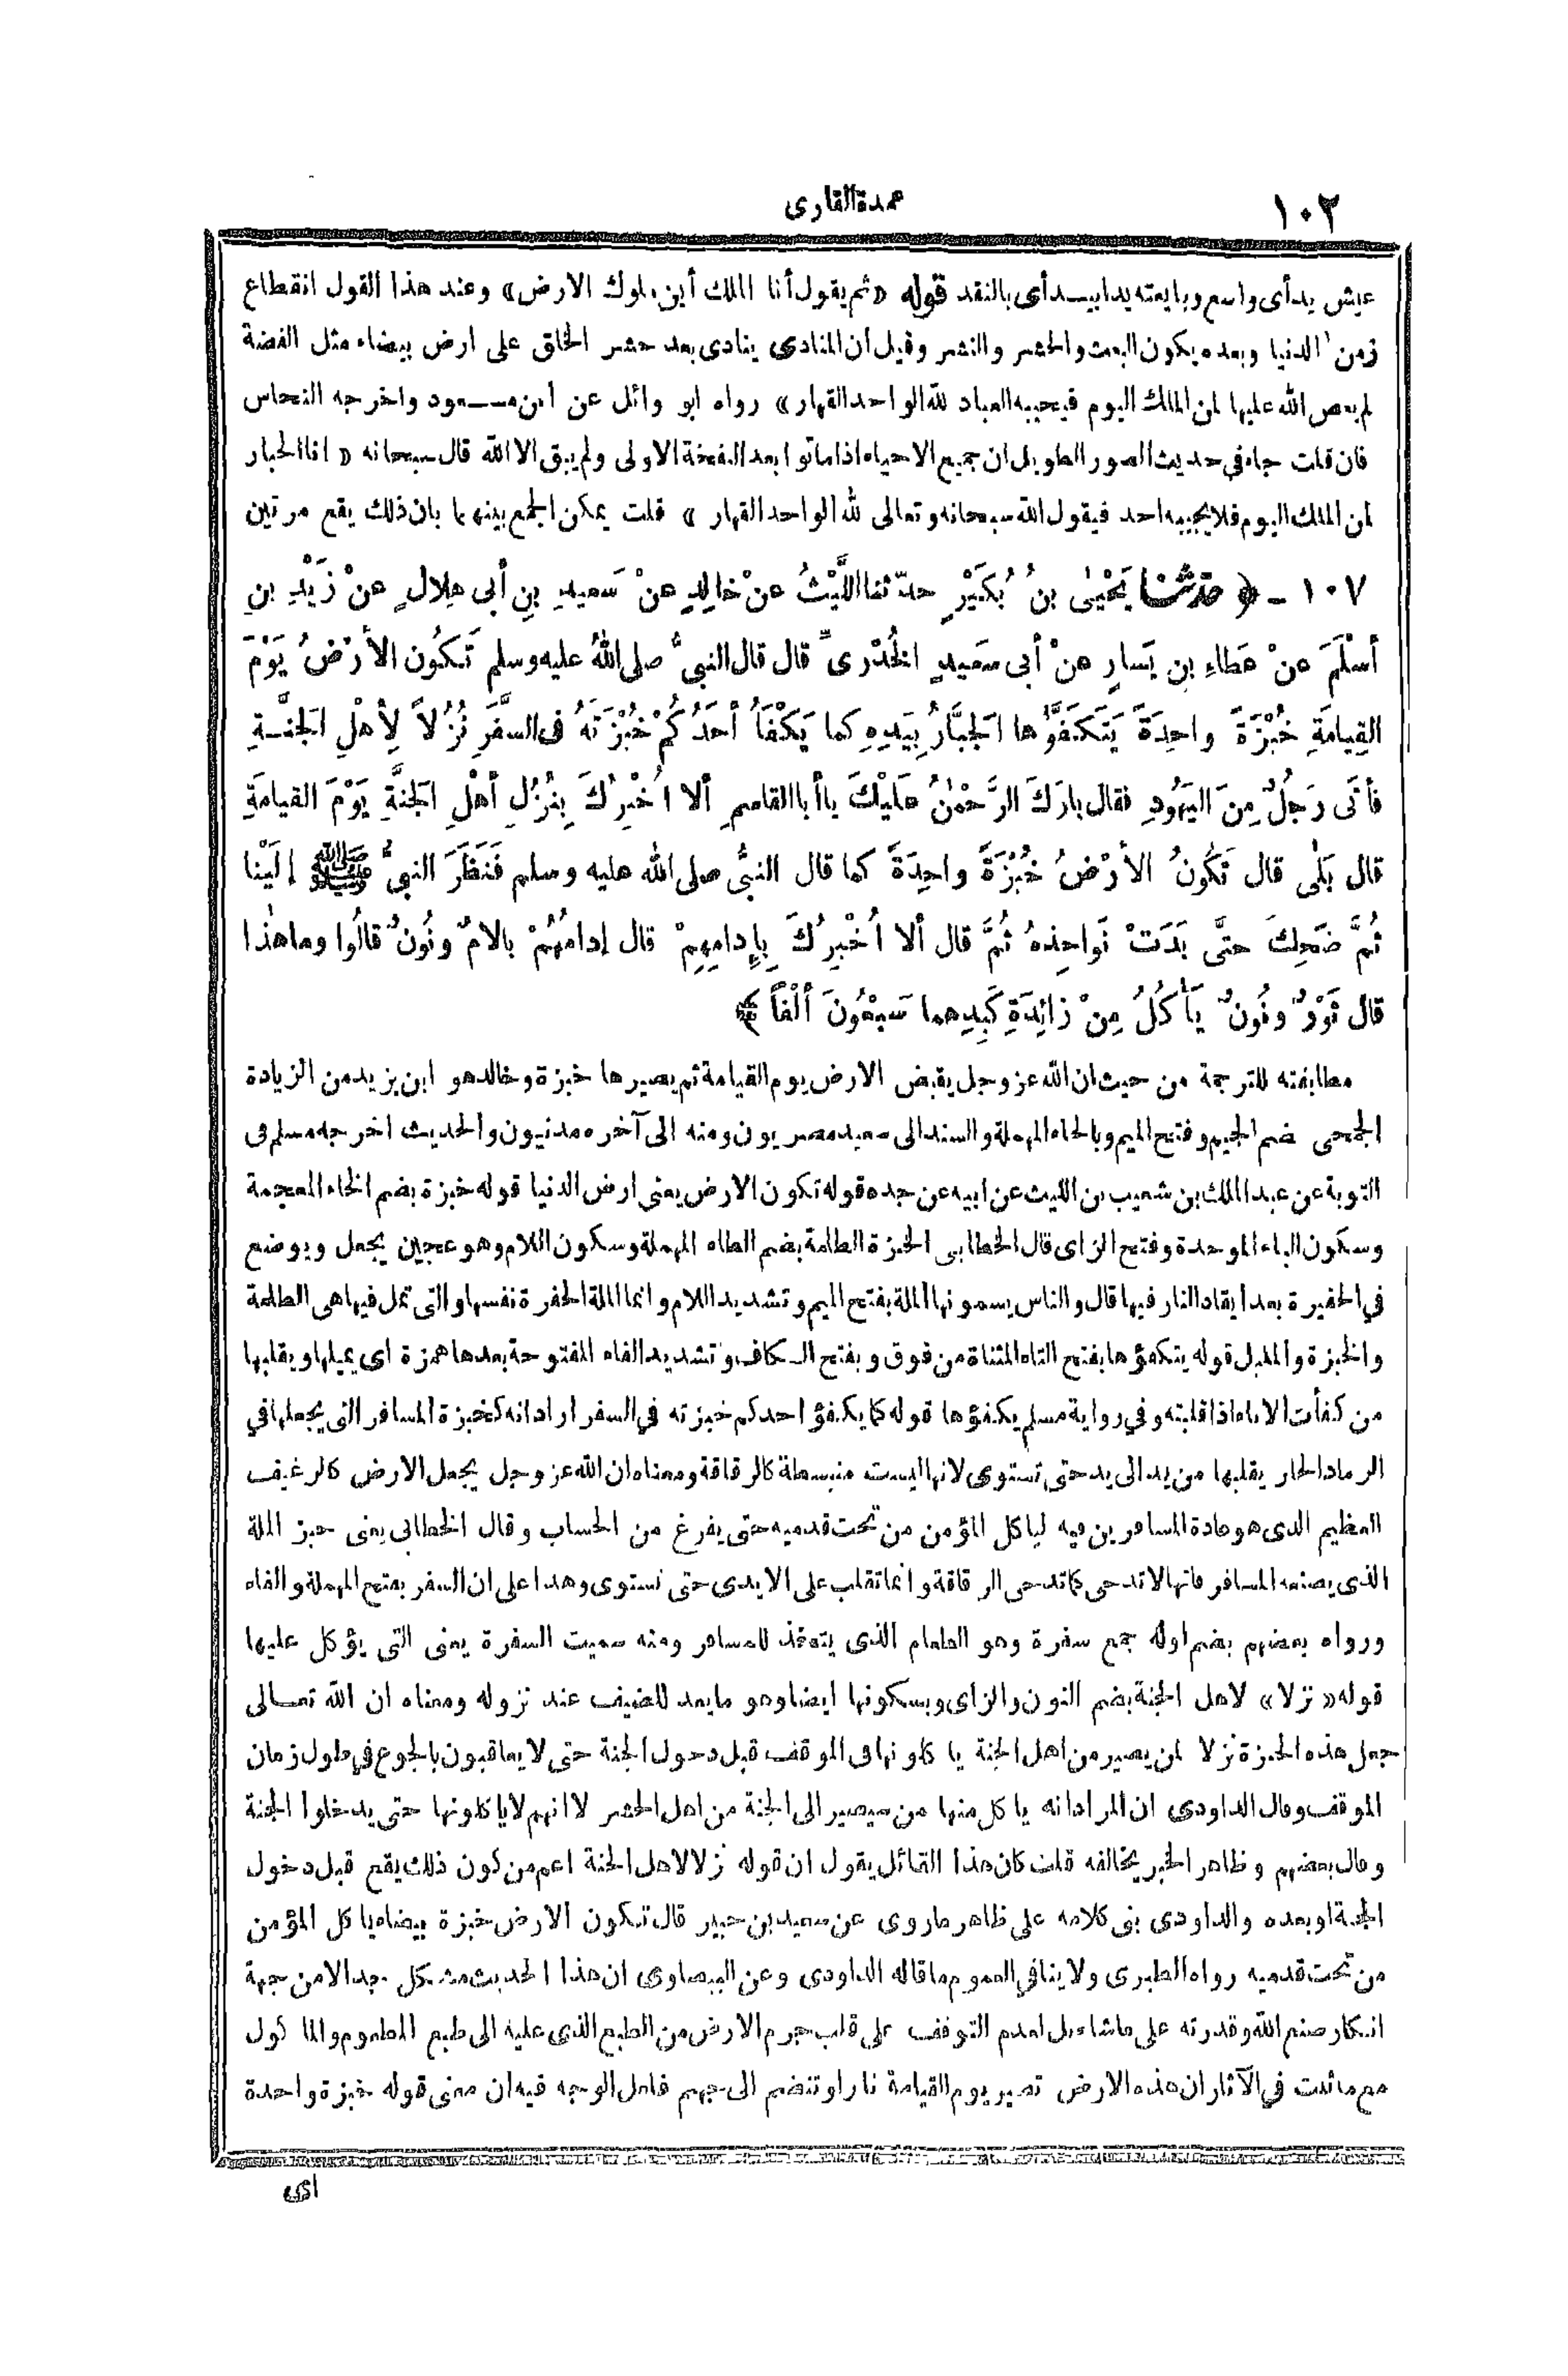 ١٠٢
عمدة القارى
عيش يد أى واسع وبايعته يدا بيد أى بالنقد قوله « ثم يقول أنا الملك أين ملوك الارض » وعند هذا القول انقطاع
زمن الدنيا وبعده يكون البعث والحشر والنشر وقيل ان المنادى ينادى بعد حشر الخلق على ارض بيضاء مثل الفضة
لم يعص الله عليها لمن الملك اليوم فيجيبه العباد لله الواحد القهار » رواه ابو وائل عن ابن مسعود واخرجه النحاس
فان قلت جاء في حديث الصور الطويل ان جميع الاحياء اذا ماتوا بعد النفخة الاولى ولم يبق الا الله قال سبحانه « انا الجبار
لمن الملك اليوم فلا يجيبه احد فيقول الله سبحانه وتعالى لله الواحد القهار » قلت يمكن الجمع بينهما بان ذلك يقع مرتين
١٠٧ - ﴿ حدثنا يَحْيٰى بنُ بُكَيْرٍ حدّثنا اللَّيْثُ عنْ خالِدٍ عنْ سَعيدِ بنِ أبى هِلالٍ عنْ زَيْدِ بنِ
أسْلَمَ عنْ عَطاءِ بنِ يَسارٍ عنْ أبى سَعيدٍ الخُدْرِىِّ قال قال النبىُّ صلى اللهُ عليه وسلم تَكُون الأرْضُ يَوْمَ
القِيامَةِ خُبْزَةً واحِدَةً يَتَكَفَّؤُها الجَبَّارُ بِيَدِهِ كما يَكْفَأُ أحَدُكُمْ خُبْزَتَهُ فى السَّفَرِ نُزُلاً لِأهْلِ الجَنَّةِ
فأتَى رَجُلٌ مِنَ اليَهُودِ فقال بارَكَ الرَّحْمٰنُ عَلَيْكَ يا أبا القاسمِ ألا أُخْبِرُكَ بِنُزُلِ أهْلِ الجَنَّةِ يَوْمَ القيامَةِ
قال بَلٰى قال تَكُونُ الأرْضُ خُبْزَةً واحِدَةً كما قال النبىُّ صلى الله عليه وسلم فَنَظَرَ النبىُّ ﷺ إلَيْنا
ثُمَّ ضَحِكَ حتَّى بَدَتْ نَواجِذهُ ثُمَّ قال ألا أُخْبِرُكَ بِإِدامِهِمْ قال إدامُهُمْ بالامٌ ونُونٌ قالُوا وما هٰذا
قال ثَوْرٌ ونُونٌ يَأكُلُ مِنْ زائِدَةِ كَبِدِهما سَبْعُونَ ألْفاً ﴾
مطابقته للترجمة من حيث ان الله عز وجل يقبض الارض يوم القيامة ثم يصيرها خبزة وخالد هو ابن يزيد من الزيادة
الجمحى بضم الجيم وفتح الميم وبالحاء المهملة والسند الى سعيد مصريون ومنه الى آخره مدنيون والحديث اخرجه مسلم فى
التوبة عن عبد الملك بن شعيب بن الليث عن ابيه عن جده قوله تكون الارض يعنى ارض الدنيا قوله خبزة بضم الخاء المعجمة
وسكون الباء الموحدة وفتح الزاى قال الخطابى الخبزة الطلمة بضم الطاء المهملة وسكون اللام وهو عجين يجعل ويوضع
في الحفيرة بعد ايقاد النار فيها قال والناس يسمونها الملة بفتح الميم وتشديد اللام وانما الملة الحفرة نفسها والتى تمل فيها هى الطلمة
والخبزة والمليل قوله يتكفؤها بفتح التاء المثناة من فوق وبفتح الكاف وتشديد الفاء المفتوحة بعدها همزة اى يميلها ويقلبها
من كفأت الاناء اذا قلبته وفي رواية مسلم يكفؤها قوله كما يكفؤ احدكم خبزته في السفر اراد انه كخبزة المسافر التى يجعلها في
الرماد الحار يقلبها من يد الى يد حتى تستوى لانها ليست منبسطة كالرقاقة ومعناه ان الله عز وجل يجعل الارض كالرغيف
العظيم الذى هو عادة المسافرين فيه ليأكل المؤمن من تحت قدميه حتى يفرغ من الحساب وقال الخطابى يعنى خبز الملة
الذى يصنعه المسافر فانها لا تدحى كما تدحى الرقاقة وانما تقلب على الايدى حتى تستوى وهذا على ان السفر بفتح المهملة والفاء
ورواه بعضهم بضم اوله جمع سفرة وهو الطعام الذى يتخذ للمسافر ومنه سميت السفرة يعنى التى يؤكل عليها
قوله « نزلا » لاهل الجنة بضم النون والزاى وبسكونها ايضا وهو ما يعد للضيف عند نزوله ومعناه ان الله تعالى
جعل هذه الخبزة نزلا لمن يصير من اهل الجنة يأكلونها فى الموقف قبل دخول الجنة حتى لا يعاقبون بالجوع في طول زمان
الموقف وقال الداودى ان المراد انه يأكل منها من سيصير الى الجنة من اهل الحشر لا انهم لا يأكلونها حتى يدخلوا الجنة
وقال بعضهم وظاهر الخبر يخالفه قلت كان هذا القائل يقول ان قوله نزلا لاهل الجنة اعم من كون ذلك يقع قبل دخول
الجنة او بعده والداودى بنى كلامه على ظاهر ما روى عن سعيد بن جبير قال تكون الارض خبزة بيضاء يأكل المؤمن
من تحت قدميه رواه الطبرى ولا ينافي العموم ما قاله الداودى وعن البيضاوى ان هذا الحديث مشكل جدا لا من جهة
انكار صنع الله وقدرته على ما شاء بل لعدم التوقف على قلب جرم الارض من الطبع الذى عليه الى طبع المطعوم والمأكول
مع ما ثبت في الآثار ان هذه الارض تصير يوم القيامة نارا وتنضم الى جهنم فلعل الوجه فيه ان معنى قوله خبزة واحدة
اى